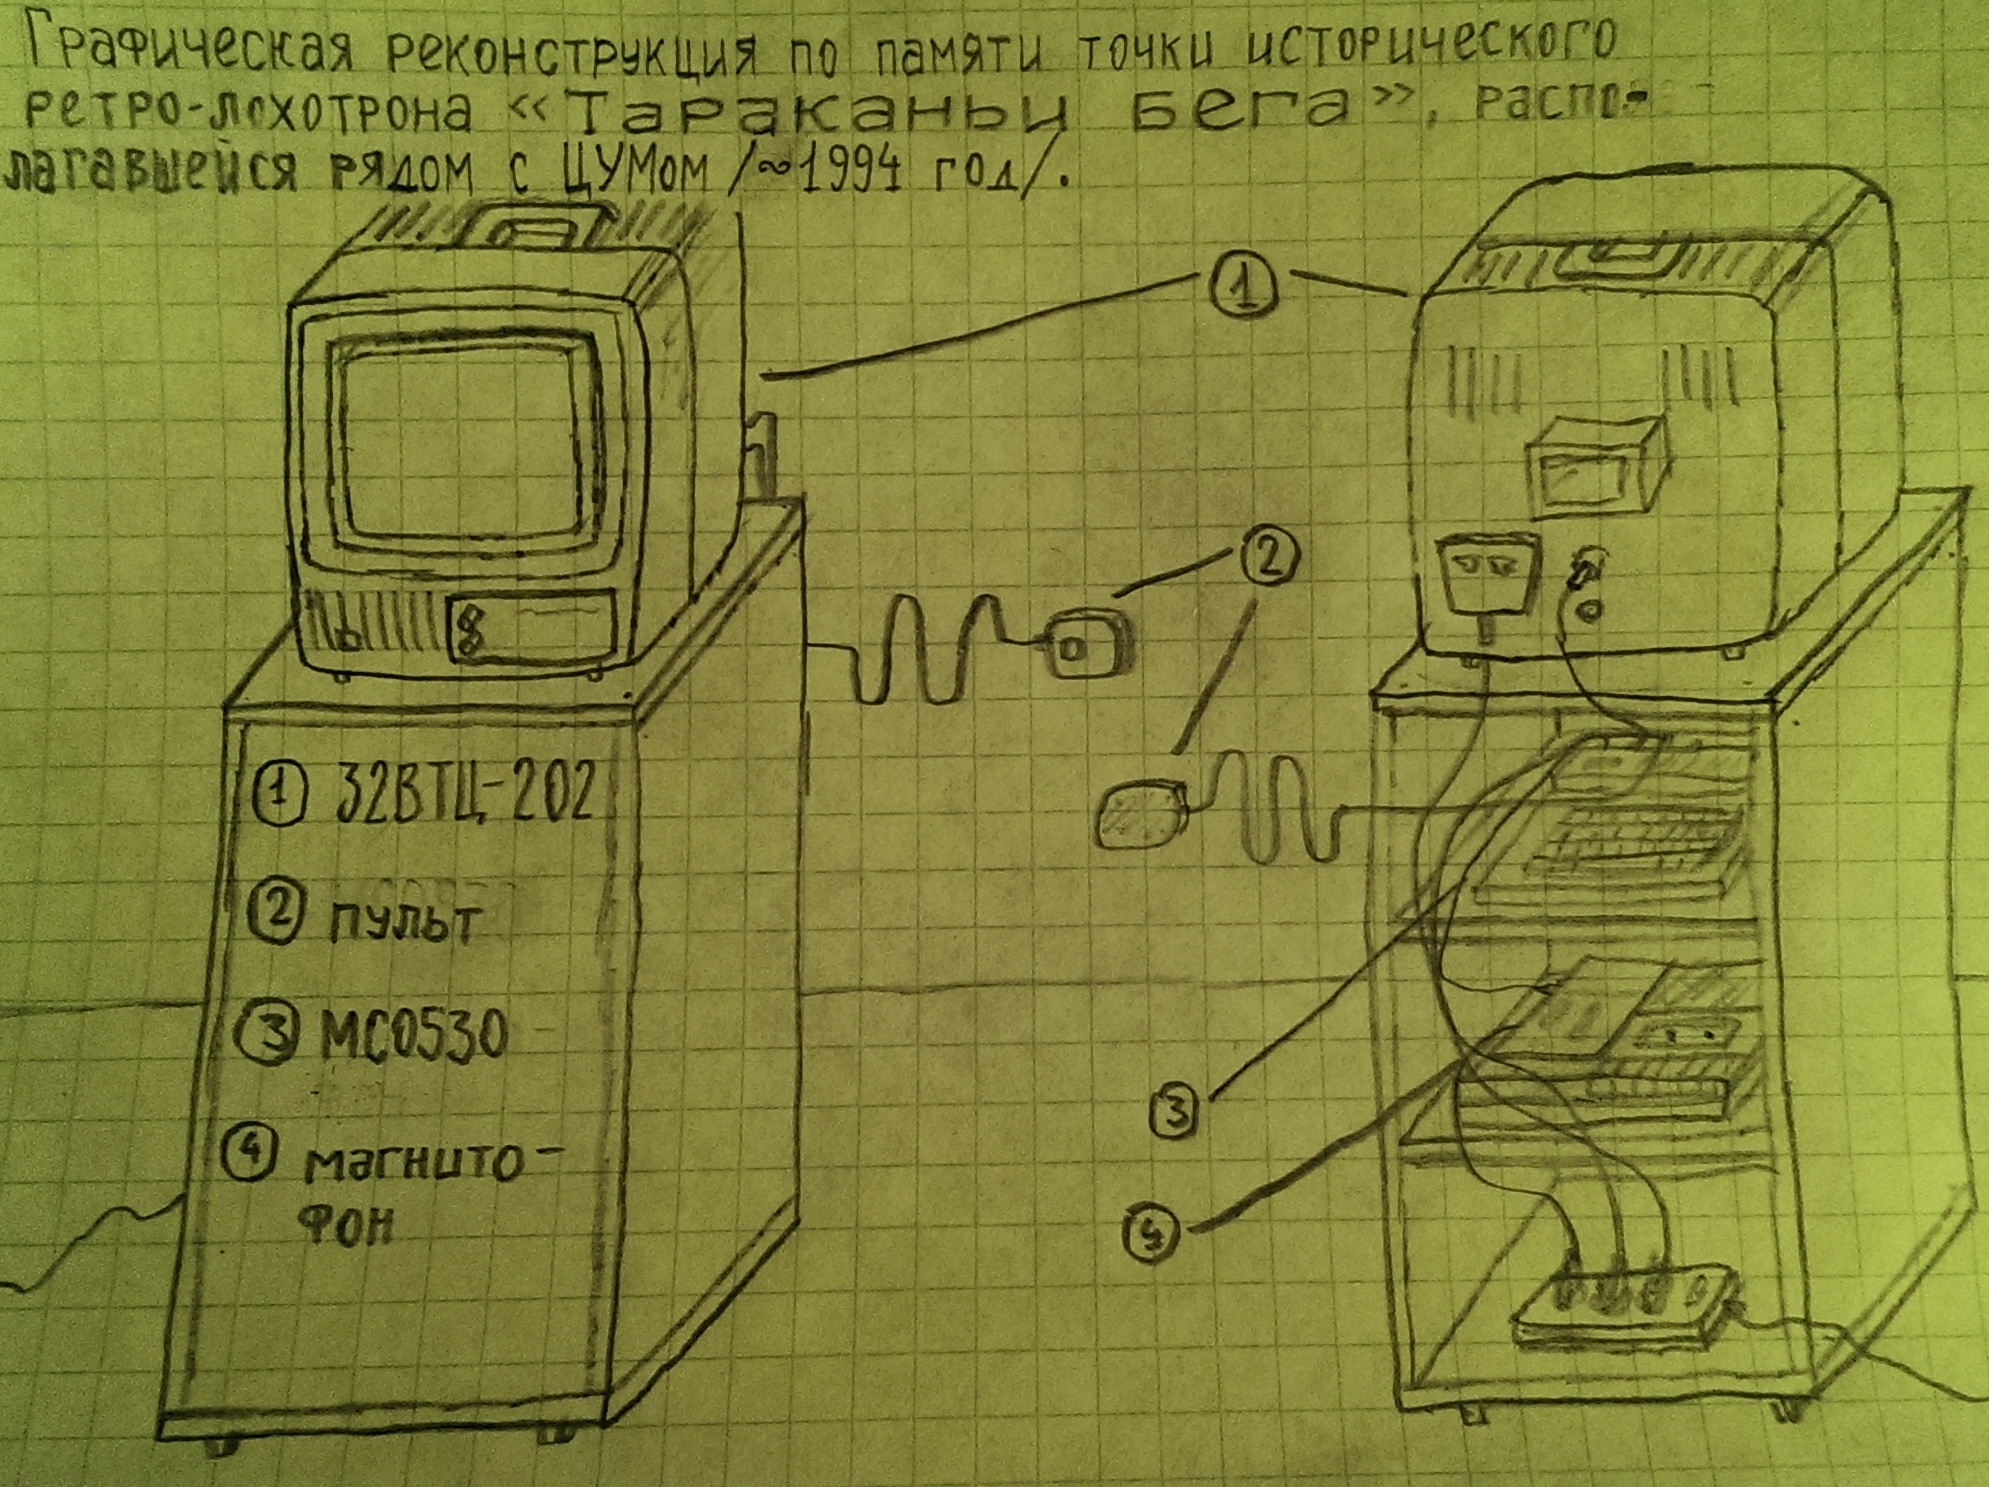 Графическая реконструкция по памяти точки исторического
ретро-лохотрона «Тараканьи бега», распо-
лагавшейся рядом с ЦУМом /~1994 год/.
1
2
1 32ВТЦ-202
2 пульт
3 МС0530
4 магнито-
фон
3
4